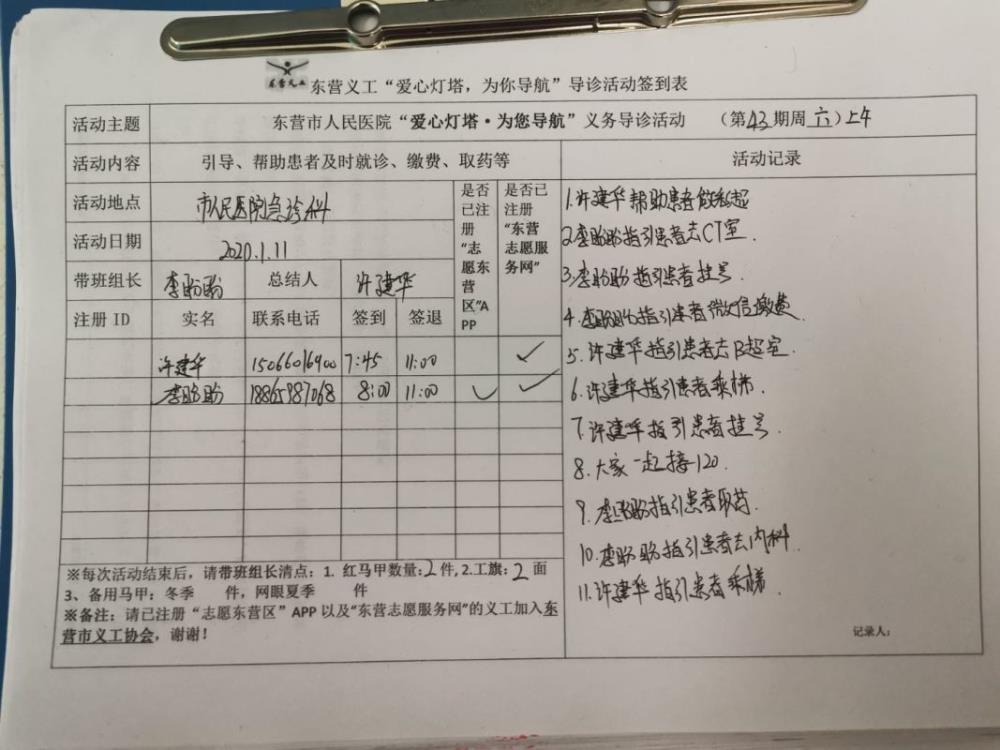 东营义工
东营义工“爱心灯塔，为你导航”导诊活动签到表
活动主题 东营市人民医院“爱心灯塔·为您导航”义务导诊活动 （第43期周六）上午
活动内容 引导、帮助患者及时就诊、缴费、取药等 活动记录
活动地点 市人民医院急诊科
活动日期 2020.1.11
带班组长 李盼盼 总结人 许建华
是否已注册“志愿东营区”APP
是否已注册“东营志愿服务网”
注册ID 实名 联系电话 签到 签退
许建华 15066016900 7:45 11:00 ✓
李盼盼 18865987068 8:00 11:00 ✓ ✓
※每次活动结束后，请带班组长清点：1. 红马甲数量：2件，2.工旗：2面
3、备用马甲：冬季 件，网眼夏季 件
※备注：请已注册“志愿东营区”APP以及“东营志愿服务网”的义工加入东
营市义工协会，谢谢！
1.许建华帮助患者做彩超
2.李盼盼指引患者去CT室.
3.李盼盼指引患者挂号
4.李盼盼指引患者微信缴费
5.许建华指引患者去B超室.
6.许建华指引患者乘梯
7.许建华指引患者挂号.
8.大家一起接120.
9.李盼盼指引患者取药.
10.李盼盼指引患者去内科.
11.许建华指引患者乘梯.
记录人：